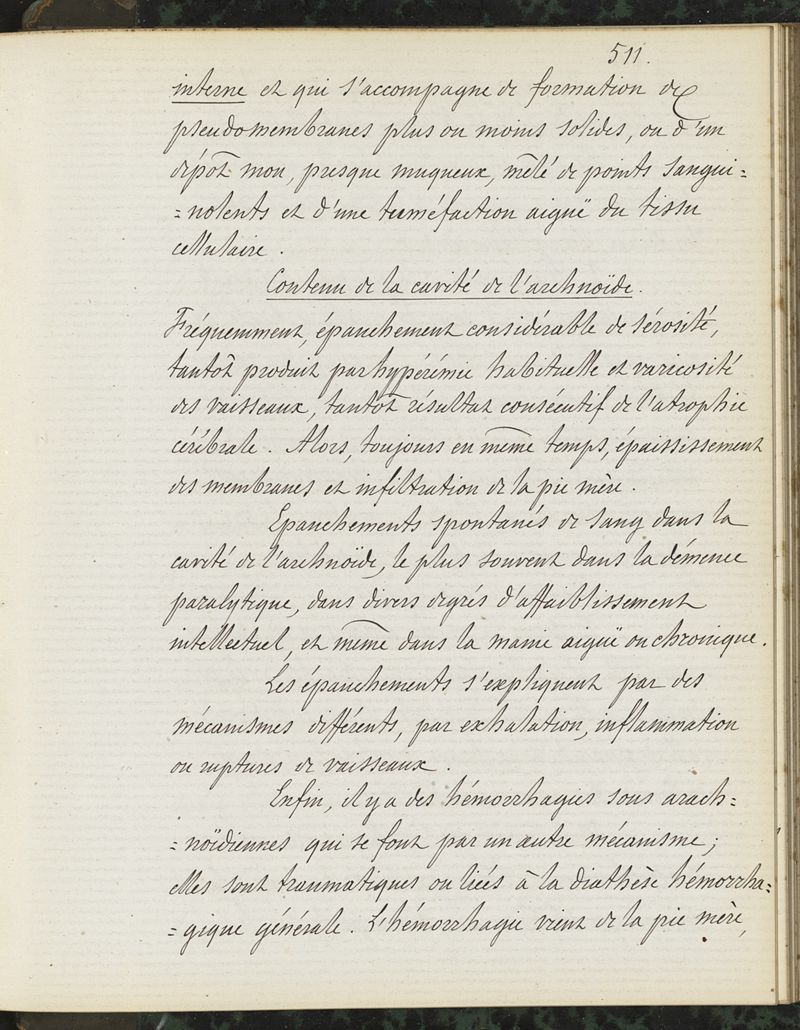 511.
interne et qui s'accompagne de formation de
pseudomembranes plus ou moins solides, ou d'un
dépôt mou, presque muqueux, mêlé de points sangui=
=nolents et d'une tuméfaction aiguë du tissu
cellulaire.
Contenu de la cavité de l'arachnoïde.
Fréquemment, épanchement considérable de sérosité,
tantôt produit par hypérémie habituelle et varicosité
des vaisseaux, tantôt résultat consécutif de l'atrophie
cérébrale. Alors, toujours en même temps, épaississement
des membranes et infiltration de la pie mère.
Epanchements spontanés de sang dans la
cavité de l'arachnoïde, le plus souvent dans la démence
paralytique, dans divers degrés d'affaiblissement
intellectuel, et même dans la manie aiguë ou chronique.
Les épanchements s'expliquent par des
mécanismes différents, par exhalation, inflammation
ou ruptures de vaisseaux.
Enfin, il y a des hémorrhagies sous arach=
=noïdiennes qui se font par un autre mécanisme;
elles sont traumatiques ou liées à la diathèse hémorrha=
=gique générale. L'hémorrhagie vient de la pie mère,